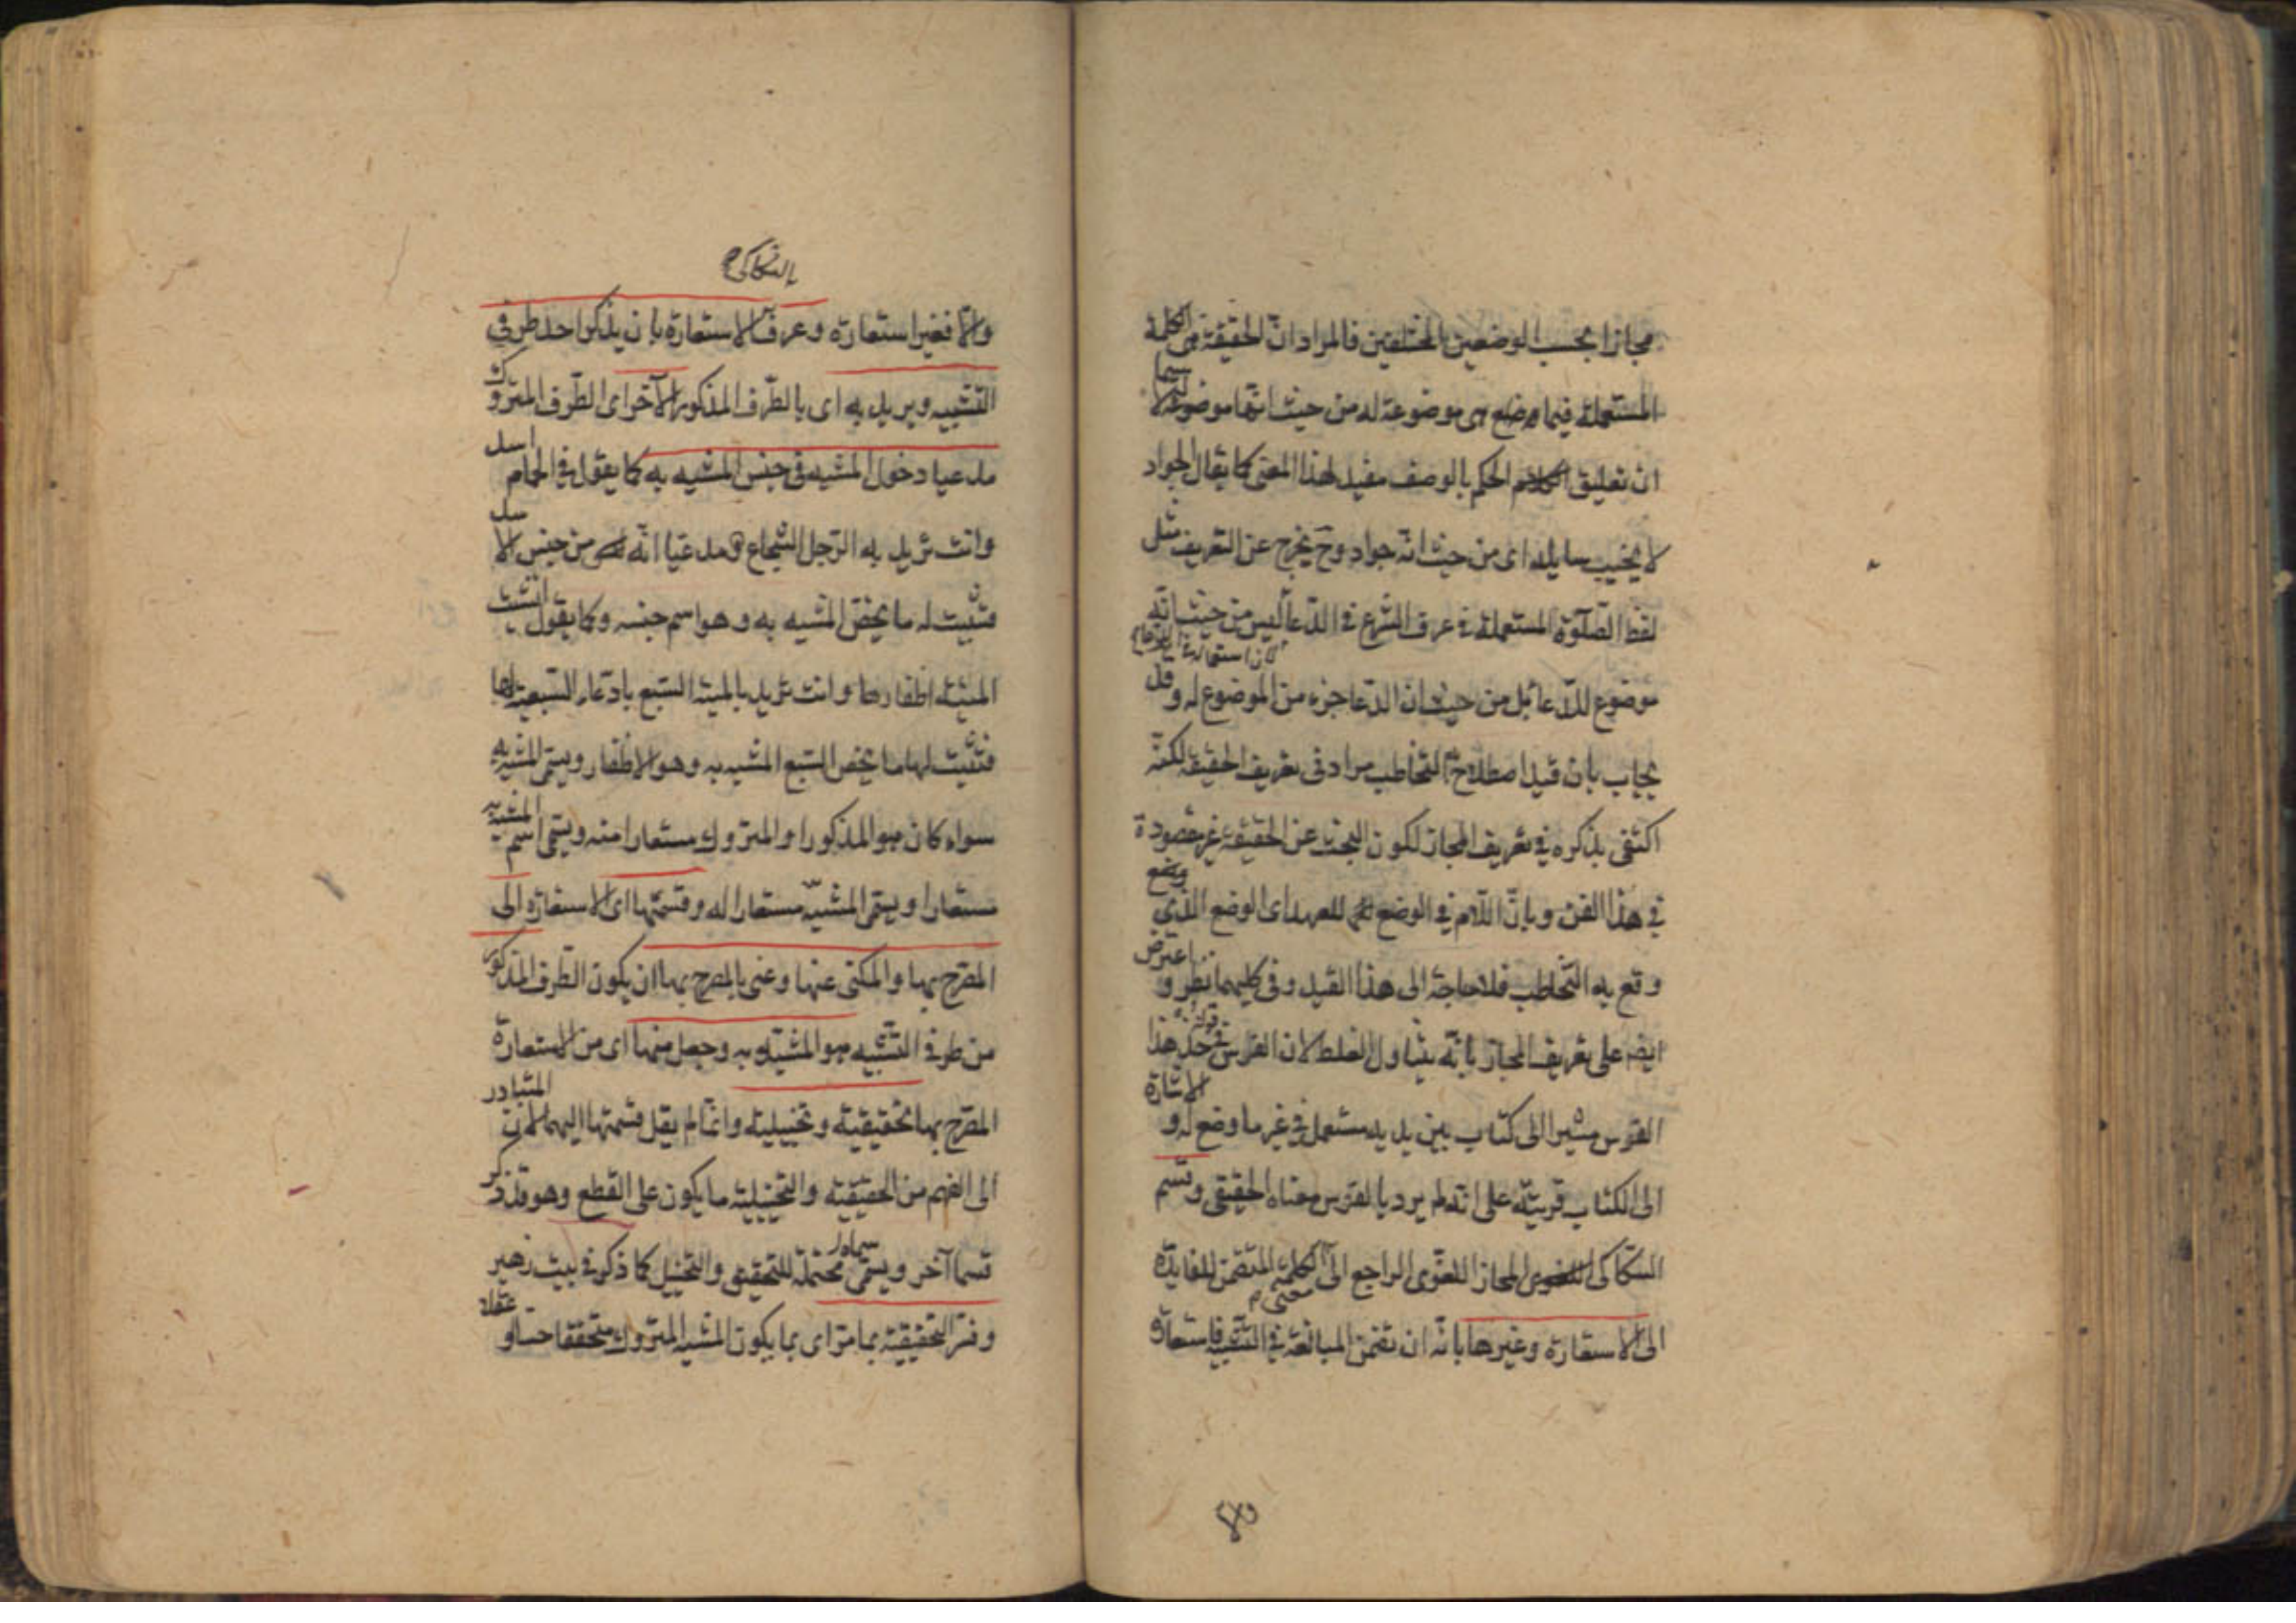 مجازا بحسب الوضعين المختلفين فالمراد ان الحقيقة هى الكلمة
المستعملة فيما هى موضوعة له من حيث انها موضوعة له لا سيما
ان تعليق الحكم بالوصف مفيد لهذا المعنى كما يقال الجواد
لا يخيب سايله اى من حيث انه جواد وح يخرج عن التعريف مثل
لفظ الصلوة المستعملة فى عرف الشرع فى الدعا ليس من حيث انه
كان استعماله فى الدعا
موضوع للدعا بل من حيث ان الدعا جزء من الموضوع له وقد
يجاب بان قيد اصطلاح التخاطب مراد فى تعريف الحقيقة لكنه
اكتفى بذكره فى تعريف المجاز لكون البحث عن الحقيقة غير مقصودة
فى هذا الفن وبان اللام فى الوضع للعهد اى الوضع الذي وضع
وقع به التخاطب فلا حاجة الى هذا القيد وفى كليهما نظر واعترض
ايضا على تعريف المجاز بانه يتناول الغلط لان الفرس فى خذ هذا
الفرس مشيرا الى كتاب بين يديه مستعمل فى غير ما وضع له والاشارة
الى الكتاب قرينة على انه لم يرد بالفرس معناه الحقيقى وقسم
السكاكى المجاز اللغوى الراجع الى معنى الكلمة المتضمن للفايدة
الى الاستعارة وغيرها بانه ان تضمن المبالغة فى التشبيه فاستعارة
السكاكى
والا فغير استعارة وعرف الاستعارة بان يذكر احد طرفى
التشبيه ويريد به اى بالطرف المذكور الآخر اى الطرف المتروك
مدعيا دخول المشبه فى جنس المشبه به كما يقول فى الحمام اسد
وانت تريد به الرجل الشجاع مدعيا انه من جنس الاسد
فتثبت له ما يخص المشبه به وهو اسم جنسه وكما يقول انشبت
المنية اظفارها وانت تريد بالمنية السبع بادعاء السبعية لها
فتثبت لها ما يخص السبع المشبه به وهو الاظفار ويسمى المشبه به
سواء كان هو المذكور او المتروك مستعارا منه ويسمى اسم المشبه به
مستعارا ويسمى المشبه مستعارا له وقسمها اى الاستعارة الى
المصرح بها والمكنى عنها وعنى بالمصرح بها ان يكون الطرف المذكور
من طرفى التشبيه هو المشبه به وجعل منها اى من الاستعارة
المصرح بها تحقيقية وتخييلية وانما لم يقل قسمها اليهما لان المتبادر
الى الفهم من الحقيقية والتخييلية ما يكون على القطع وهو قد ذكر
قسما آخر ويسمى محتملة للتحقيق والتخييل كما ذكر فى بيت زهير
وفسر التحقيقية بما مر اى بما يكون المشبه المتروك متحققا حسا او عقلا